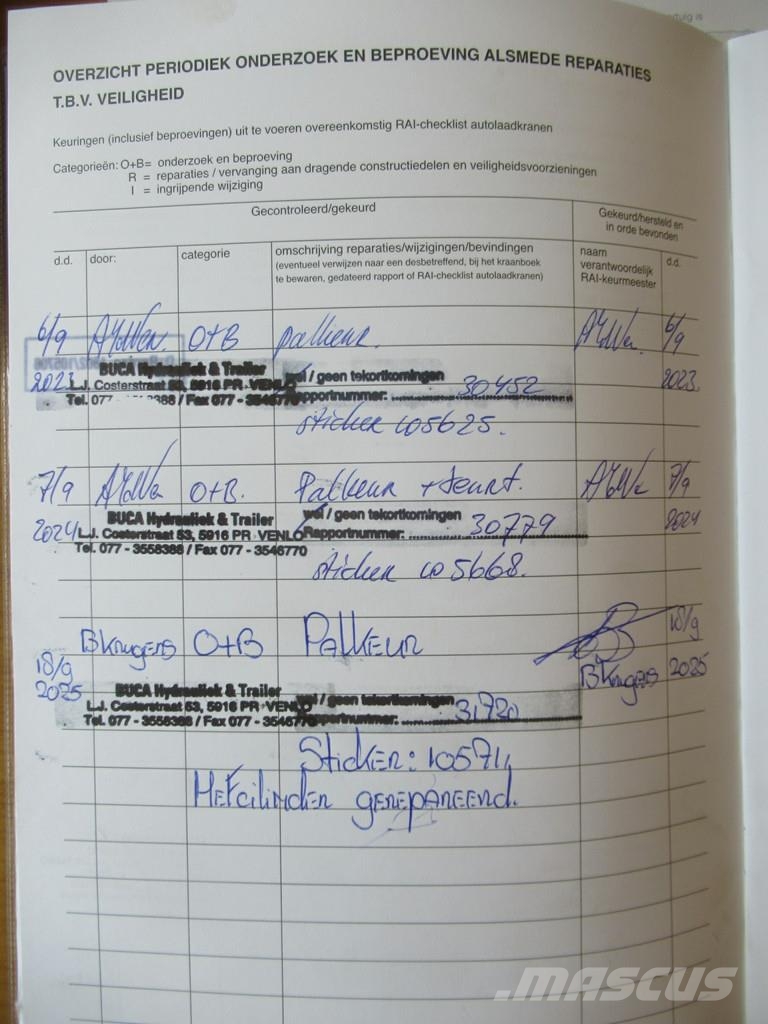 OVERZICHT PERIODIEK ONDERZOEK EN BEPROEVING ALSMEDE REPARATIES
T.B.V. VEILIGHEID
Keuringen (inclusief beproevingen) uit te voeren overeenkomstig RAI-checklist autolaadkranen
Categorieën: O+B= onderzoek en beproeving
R = reparaties / vervanging aan dragende constructiedelen en veiligheidsvoorzieningen
I = ingrijpende wijziging
Gecontroleerd/gekeurd
Gekeurd/hersteld en
in orde bevonden
d.d.
door:
categorie
omschrijving reparaties/wijzigingen/bevindingen
(eventueel verwijzen naar een desbetreffend, bij het kraanboek
te bewaren, gedateerd rapport of RAI-checklist autolaadkranen)
naam
verantwoordelijk
RAI-keurmeester
d.d.
6/9 O+B palkeur. 6/9
2023 2023.
BUCA Hydrauliek & Trailer
L.J. Costerstraat 53, 5916 PR - VENLO
Tel. 077 - 388 / Fax 077 - 3546770
wel / geen tekortkomingen
Rapportnummer: 30452
sticker 105625.
7/9 O+B. Palkeur 7/9
2024 2024
BUCA Hydrauliek & Trailer
L.J. Costerstraat 53, 5916 PR - VENLO
Tel. 077 - 3558388 / Fax 077 - 3546770
wel / geen tekortkomingen
Rapportnummer: 30779
sticker 105668.
18/9 2025 BKrugers O+B Palkeur BKrugers 18/9 2025
BUCA Hydrauliek & Trailer
L.J. Costerstraat 53, 5916 PR - VENLO
Tel. 077 - 3558388 / Fax 077 - 3546770
wel / geen tekortkomingen
Rapportnummer: 31720
Sticker: 105711
Hefcilinder gerepareerd.
mascus